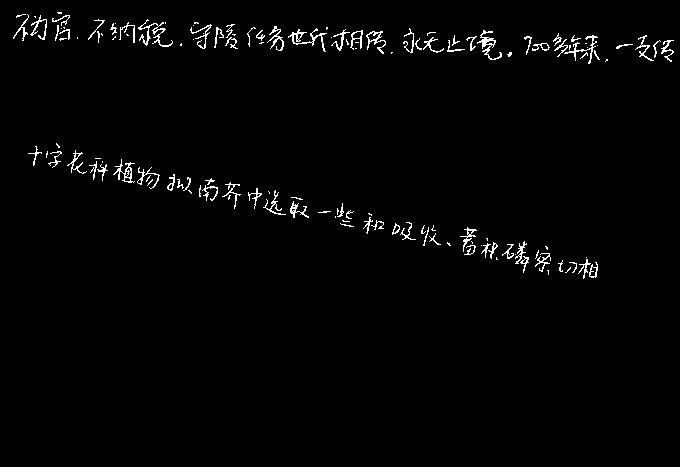 不为官、不纳税，守陵任务世代相传，永无止境。700多年来，一支传
十字花科植物拟南芥中选取一些和吸收、蓄积磷密切相